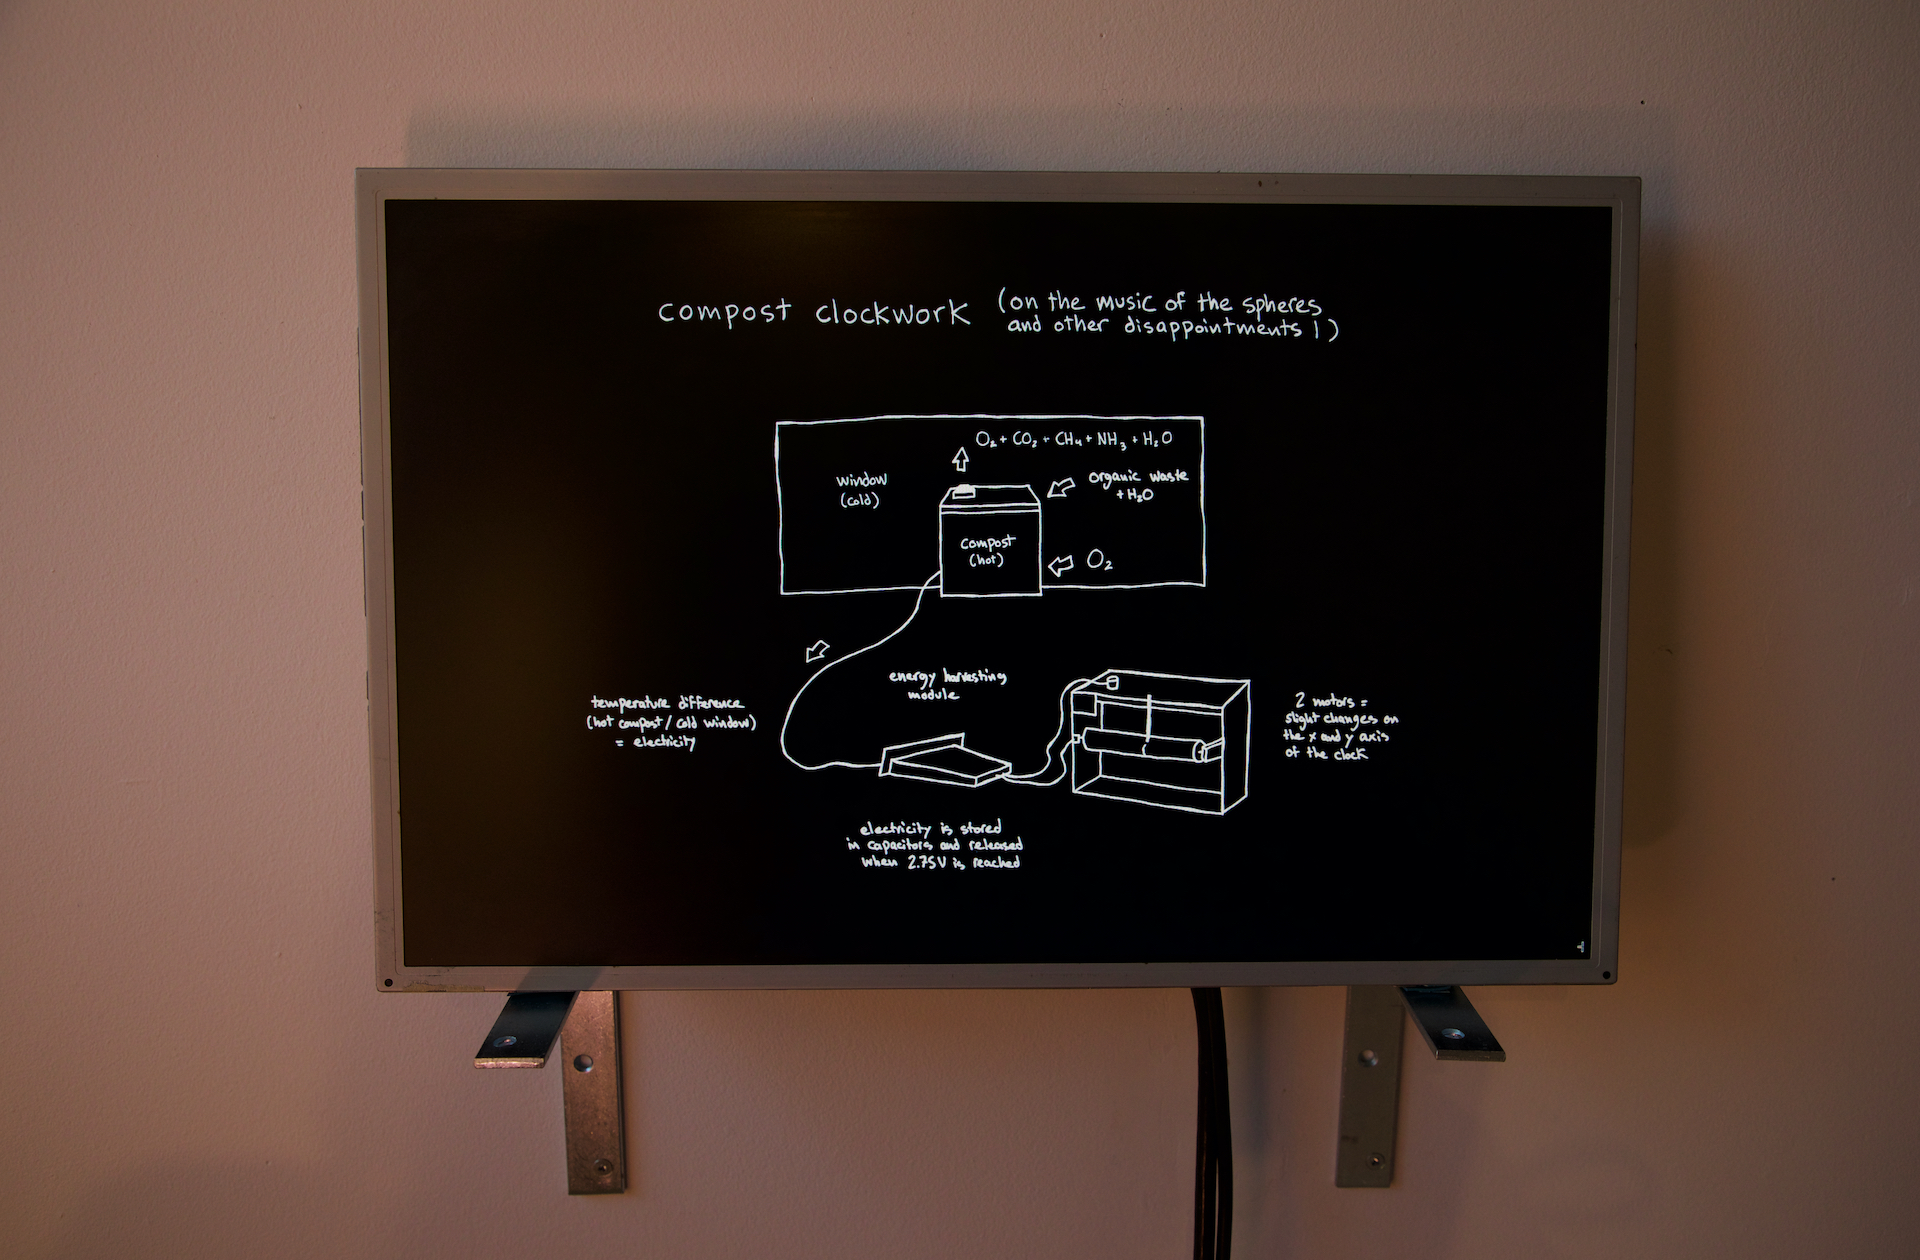 compost clockwork (on the music of the spheres
and other disappointments I)
O₂ + CO₂ + CH₄ + NH₃ + H₂O
window
(cold)
organic waste
+ H₂O
compost
(hot)
O₂
energy harvesting
module
temperature difference
(hot compost / cold window)
= electricity
2 motors =
slight changes on
the x and y axis
of the clock
electricity is stored
in capacitors and released
when 2.75V is reached